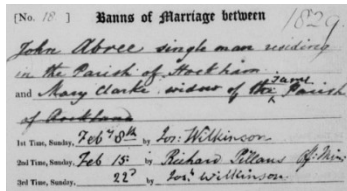 [No. 18 ] Banns of Marriage between 1829.
John Abree single man residing
in the Parish of Hockham
and Mary Clarke widow of the same Parish
of Rockland
1st Time, Sunday, Feby 8th by Jos: Wilkinson
2nd Time, Sunday, Feb 15. by Richard Pillans Off: Min:
3rd Time, Sunday, 22d by Josh Wilkinson